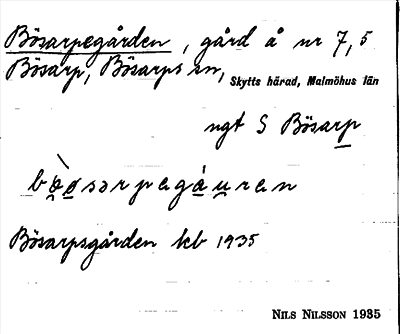 Bösarpegården, gård å nr 7,5
Bösarp, Bösarps sn, Skytts härad, Malmöhus län
ngt S Bösarp
Bösarpsgården kb 1935
NILS NILSSON 1935